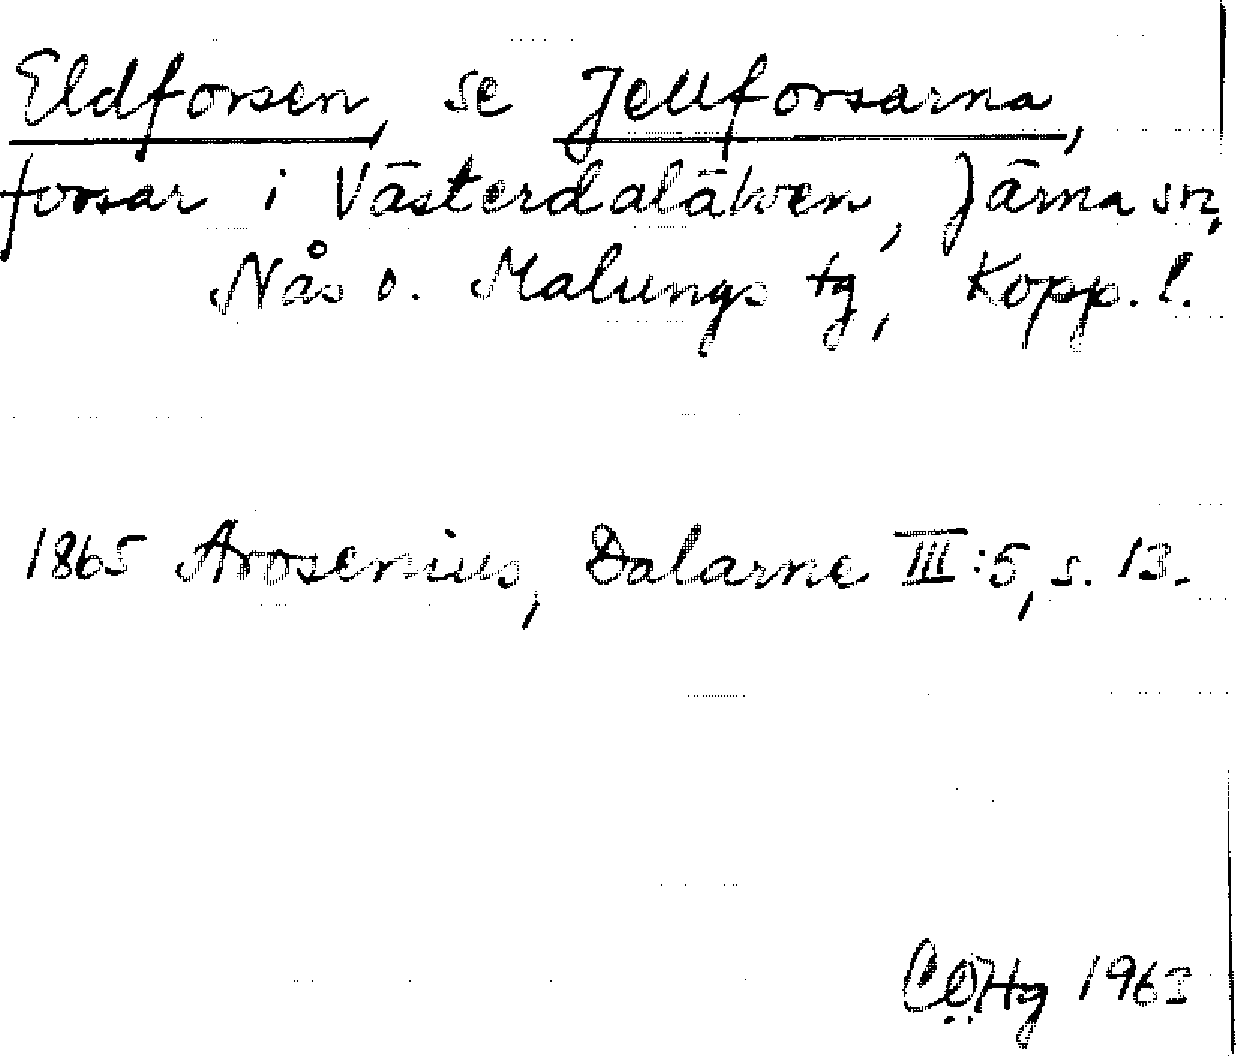 Eldforsen, se Jellforsarna,
forsar i Västerdalälven, Järna sn,
Nås o. Malungs tg, Kopp. l.
1865 Arosenius, Dalarne III:5, s. 13.
1963